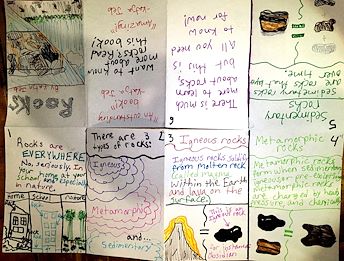 Rocks
"Amazing!"
Want to know
more about
rocks? Read
this book!
"An outstanding
book!"
1
Rocks are
EVERYWHERE!
No, seriously. In
your home, at
school and especially
in nature.
Home
School
nature
2
There are 3
types of rocks:
Igneous
Metamorphic
and...
Sedimentary
3
Igneous rocks
Igneous rocks
from molten rock
called magma
within the Earth
and lava on the
surface.
This is an
igneous rock
for instance:
Obsidian
4
Metamorphic
rocks
Metamorphic rocks
form when sedimentary
igneous or pre-existing
metamorphic rocks
are changed by heat,
pressure and chemicals
5
Sedimentary
rocks
Sedimentary rocks
are rocks that
over time.
6
There is much
more to learn
about rocks,
but this is
all you need
to know
for now